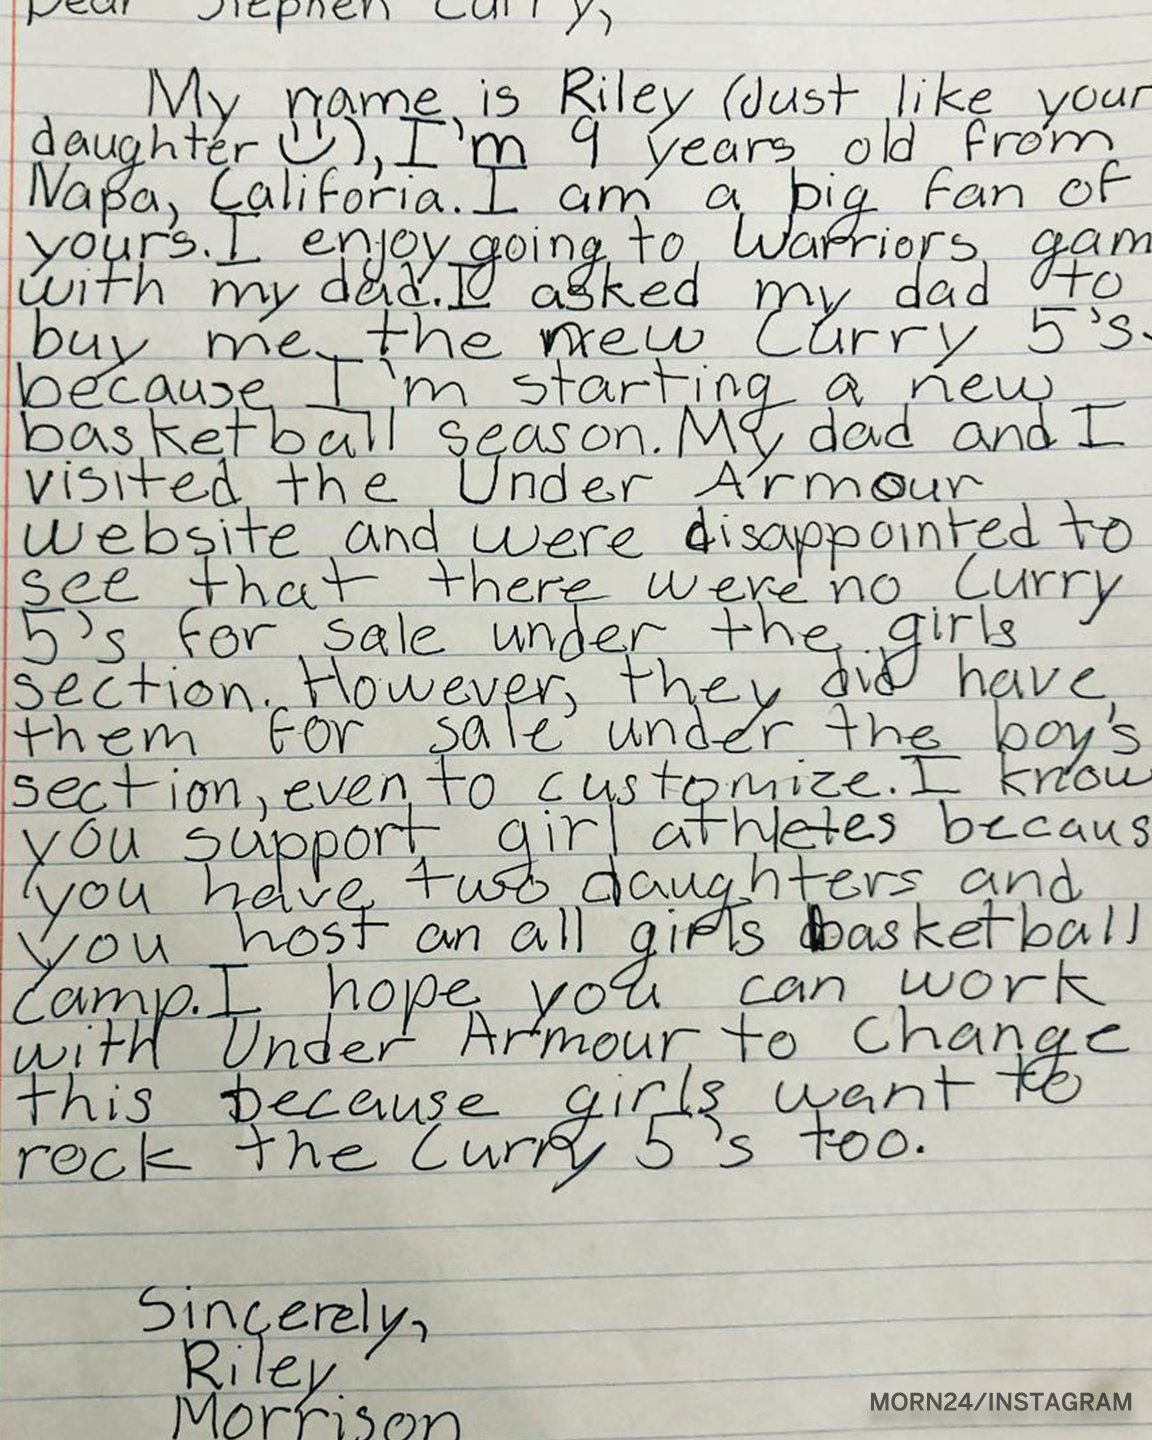 Dear Stephen Curry,
My name is Riley (Just like your
daughter :)), I'm 9 years old from
Napa, Califoria. I am a big fan of
yours. I enjoy going to Warriors gam
with my dad. I asked my dad to
buy me the new Curry 5's
because I'm starting a new
basketball season. My dad and I
visited the Under Armour
website and were disappointed to
see that there were no Curry
5's for sale under the girls
section. However, they did have
them for sale under the boy's
section, even to customize. I know
you support girl athletes becaus
you have two daughters and
you host an all girls basketball
camp. I hope you can work
with Under Armour to change
this because girls want to
rock the Curry 5's too.
Sincerely,
Riley
Morrison
MORN24/INSTAGRAM